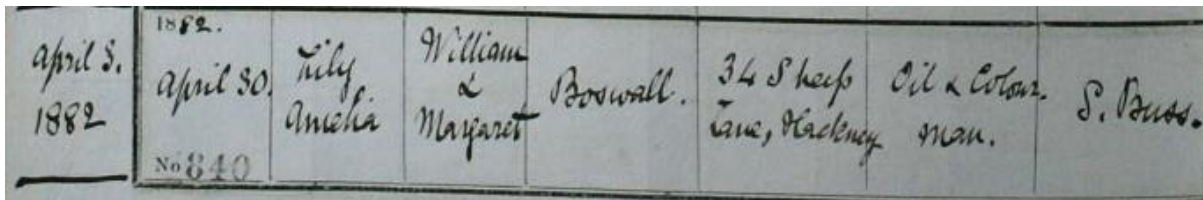 April 3.
1882
1882.
April 30.
No 840
Lily
Amelia
William
&
Margaret
Boswall.
34 Sheep
Lane, Hackney
Oil & Colour.
man.
S. Buss.